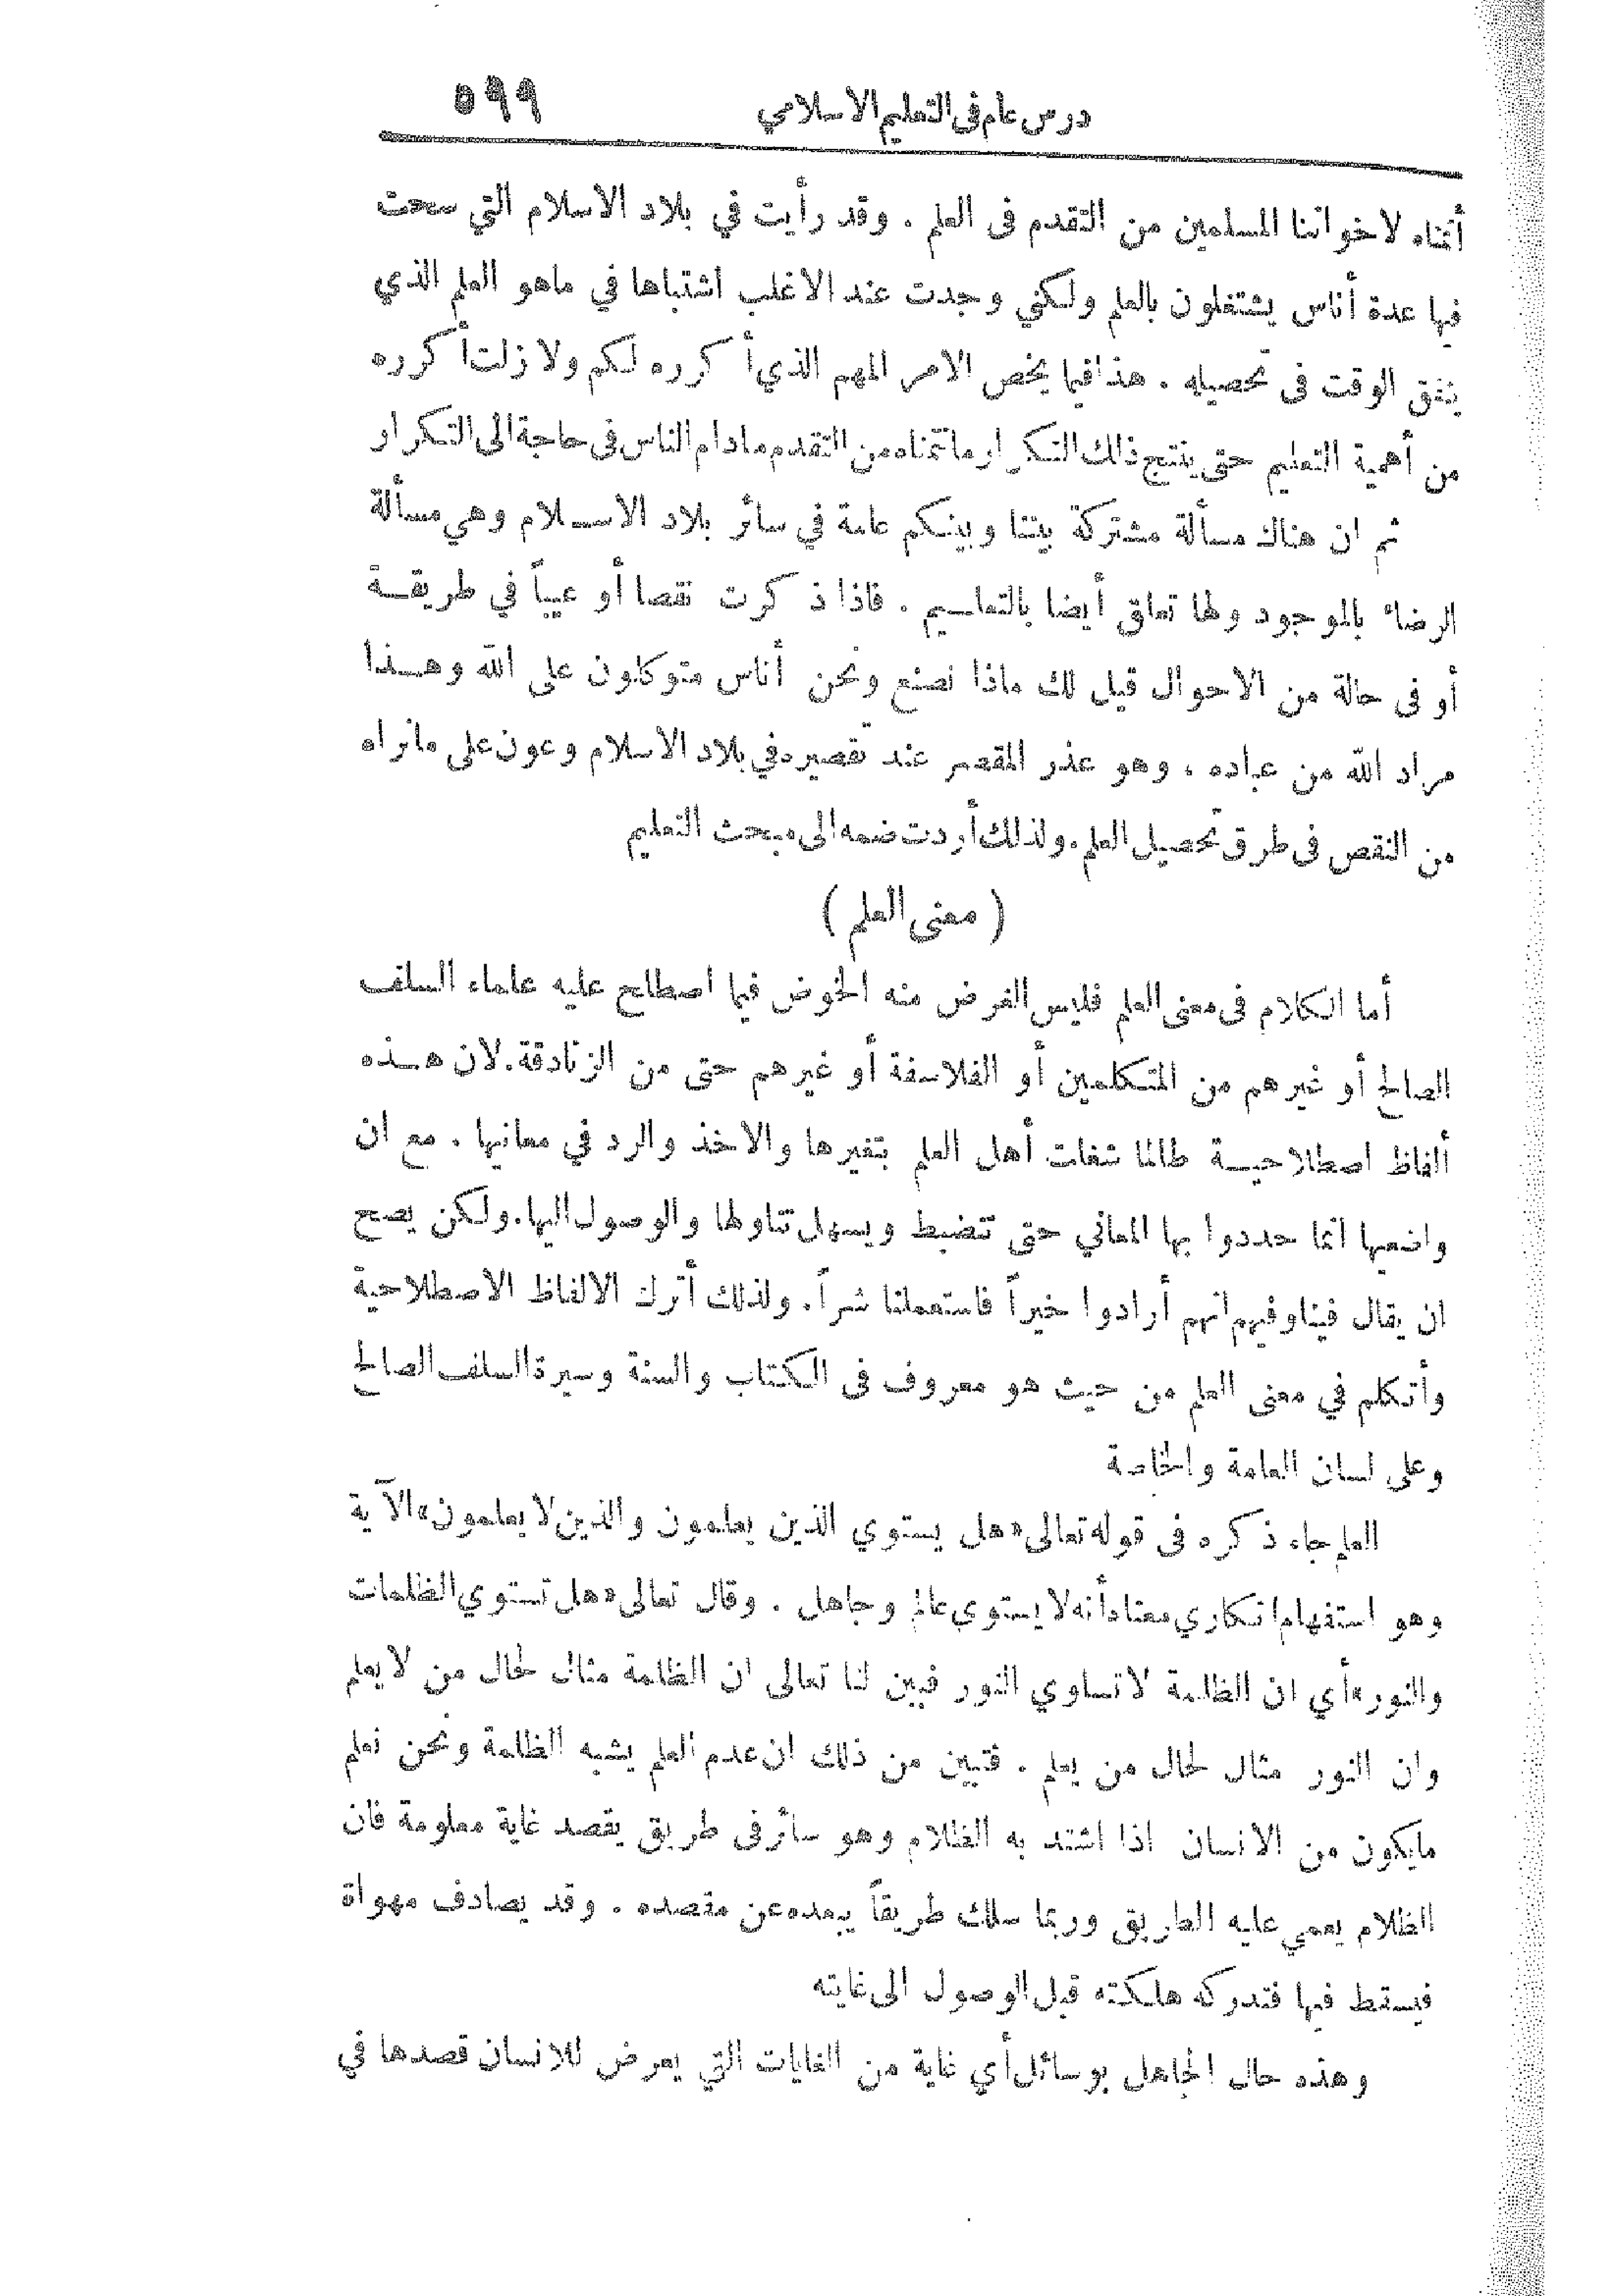 درس عام فى التعليم الاسلامي
٥٩٩
أتمناه لاخواننا المسلمين من التقدم فى العلم . وقد رأيت في بلاد الاسلام التي سحت
فيها عدة أناس يشتغلون بالعلم ولكني وجدت عند الاغلب اشتباها في ماهو العلم الذي
ينفق الوقت فى تحصيله . هذا فيما يخص الامر المهم الذي أكرره لكم ولا زلت أكرره
من أهمية التعليم حتى ينتج ذلك التكرار ما نتمناه من التقدم مادام الناس فى حاجة الى التكرار
ثم ان هناك مسألة مشتركة بيننا وبينكم عامة في سائر بلاد الاسلام وهي مسألة
الرضاء بالموجود ولها تعلق أيضا بالتعليم . فاذا ذكرت نقصا أو عيباً في طريقة
أو فى حالة من الاحوال قيل لك ماذا نصنع ونحن أناس متوكلون على الله وهذا
مراد الله من عباده ، وهو عذر المقصر عند تقصيره في بلاد الاسلام وعون على مانراه
من النقص فى طرق تحصيل العلم . ولذلك أردت ضمه الى مبحث التعليم
( معنى العلم )
أما الكلام فى معنى العلم فليس الغرض منه الخوض فيما اصطلح عليه علماء السلف
الصالح أو غيرهم من المتكلمين أو الفلاسفة أو غيرهم حتى من الزنادقة . لان هذه
ألفاظ اصطلاحية طالما شغلت أهل العلم بتغيرها والاخذ والرد في معانيها . مع ان
واضعيها انما حددوا بها المعاني حتى تنضبط ويسهل تناولها والوصول اليها . ولكن يصح
ان يقال فينا وفيهم انهم أرادوا خيراً فاستعملنا شراً . ولذلك أترك الالفاظ الاصطلاحية
وأتكلم في معنى العلم من حيث هو معروف فى الكتاب والسنة وسيرة السلف الصالح
وعلى لسان العامة والخاصة
العلم جاء ذكره فى قوله تعالى «هل يستوي الذين يعلمون والذين لا يعلمون» الآية
وهو استفهام انكاري معناه أنه لا يستوى عالم وجاهل . وقال تعالى «هل تستوي الظلمات
والنور» أي ان الظلمة لا تساوي النور فبين لنا تعالى ان الظلمة مثال لحال من لا يعلم
وان النور مثال لحال من يعلم . فتبين من ذلك ان عدم العلم يشبه الظلمة ونحن نعلم
مايكون من الانسان اذا اشتد به الظلام وهو سائر فى طريق يقصد غاية معلومة فان
الظلام يعمي عليه الطريق وربما سلك طريقاً يبعده عن مقصده . وقد يصادف مهواة
فيسقط فيها فتدركه هلكته قبل الوصول الى غايته
وهذه حال الجاهل بوسائل أي غاية من الغايات التي يعرض للانسان قصدها في